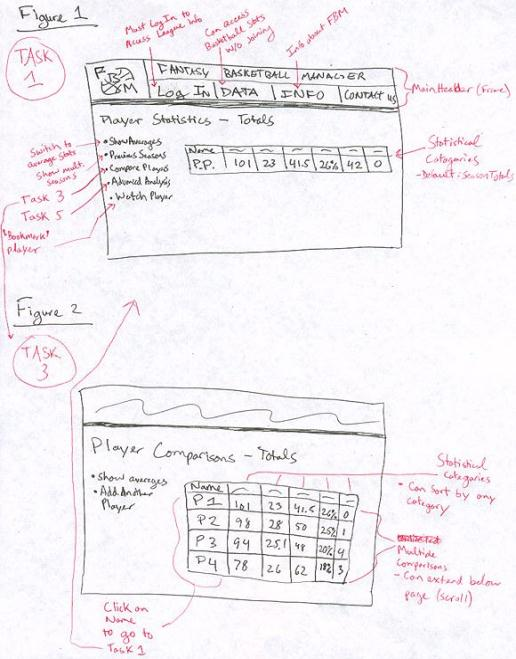 Figure 1
TASK
1
Must Log In to
Access League Info
Can access
Basketball Stats
w/o Joining
Info about FBM
F
B
M
FANTASY BASKETBALL MANAGER
Log In DATA INFO CONTACT US
Main Header (Frame)
Player Statistics - Totals
• Show Averages
• Previous Seasons
• Compare Players
• Advanced Analysis
• Watch Player
Name
P.P. 101 23 41.5 26% 42 0
Statistical
Catagories
- Default: Season Totals
Switch to
average stats
Show mult.
Seasons
Task 3
Task 5
"Bookmark"
player
Figure 2
TASK
3
Player Comparisons - Totals
• Show averages
• Add Another
Player
Name
P1 101 23 41.5 26% 0
P2 98 28 50 25% 1
P3 94 25.1 48 20% 4
P4 78 26 62 18% 3
Statistical
Categories
• Can sort by any
category
Multiple
Comparisons
- Can extend below
page (scroll)
Click on
Name
to go to
Task 1